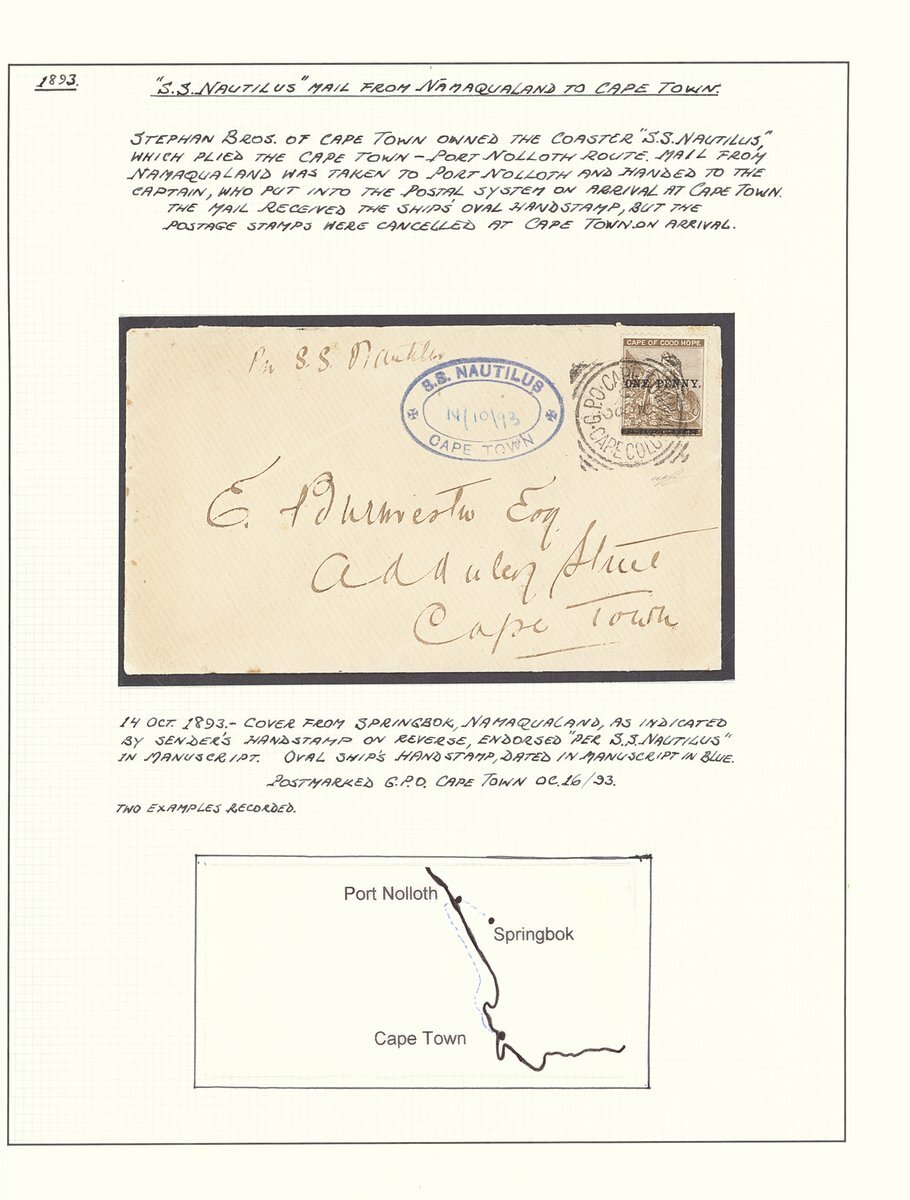 1893.
"S.S. NAUTILUS" MAIL FROM NAMAQUALAND TO CAPE TOWN.
STEPHAN BROS. OF CAPE TOWN OWNED THE COASTER "S.S. NAUTILUS,"
WHICH PLIED THE CAPE TOWN – PORT NOLLOTH ROUTE. MAIL FROM
NAMAQUALAND WAS TAKEN TO PORT NOLLOTH AND HANDED TO THE
CAPTAIN, WHO PUT INTO THE POSTAL SYSTEM ON ARRIVAL AT CAPE TOWN.
THE MAIL RECEIVED THE SHIPS' OVAL HANDSTAMP, BUT THE
POSTAGE STAMPS WERE CANCELLED AT CAPE TOWN ON ARRIVAL.
Per S.S. Nautilus
S.S. NAUTILUS
14/10/93
CAPE TOWN
CAPE OF GOOD HOPE
ONE PENNY.
G.P.O. CAPE TOWN
CAPE COLONY
E. Burmester Esq
Adderley Street
Cape Town
14 OCT. 1893.- COVER FROM SPRINGBOK, NAMAQUALAND, AS INDICATED
BY SENDER'S HANDSTAMP ON REVERSE, ENDORSED "PER S.S. NAUTILUS"
IN MANUSCRIPT. OVAL SHIP'S HANDSTAMP, DATED IN MANUSCRIPT IN BLUE.
POSTMARKED G.P.O. CAPE TOWN OC.16/93.
TWO EXAMPLES RECORDED.
Port Nolloth
Springbok
Cape Town